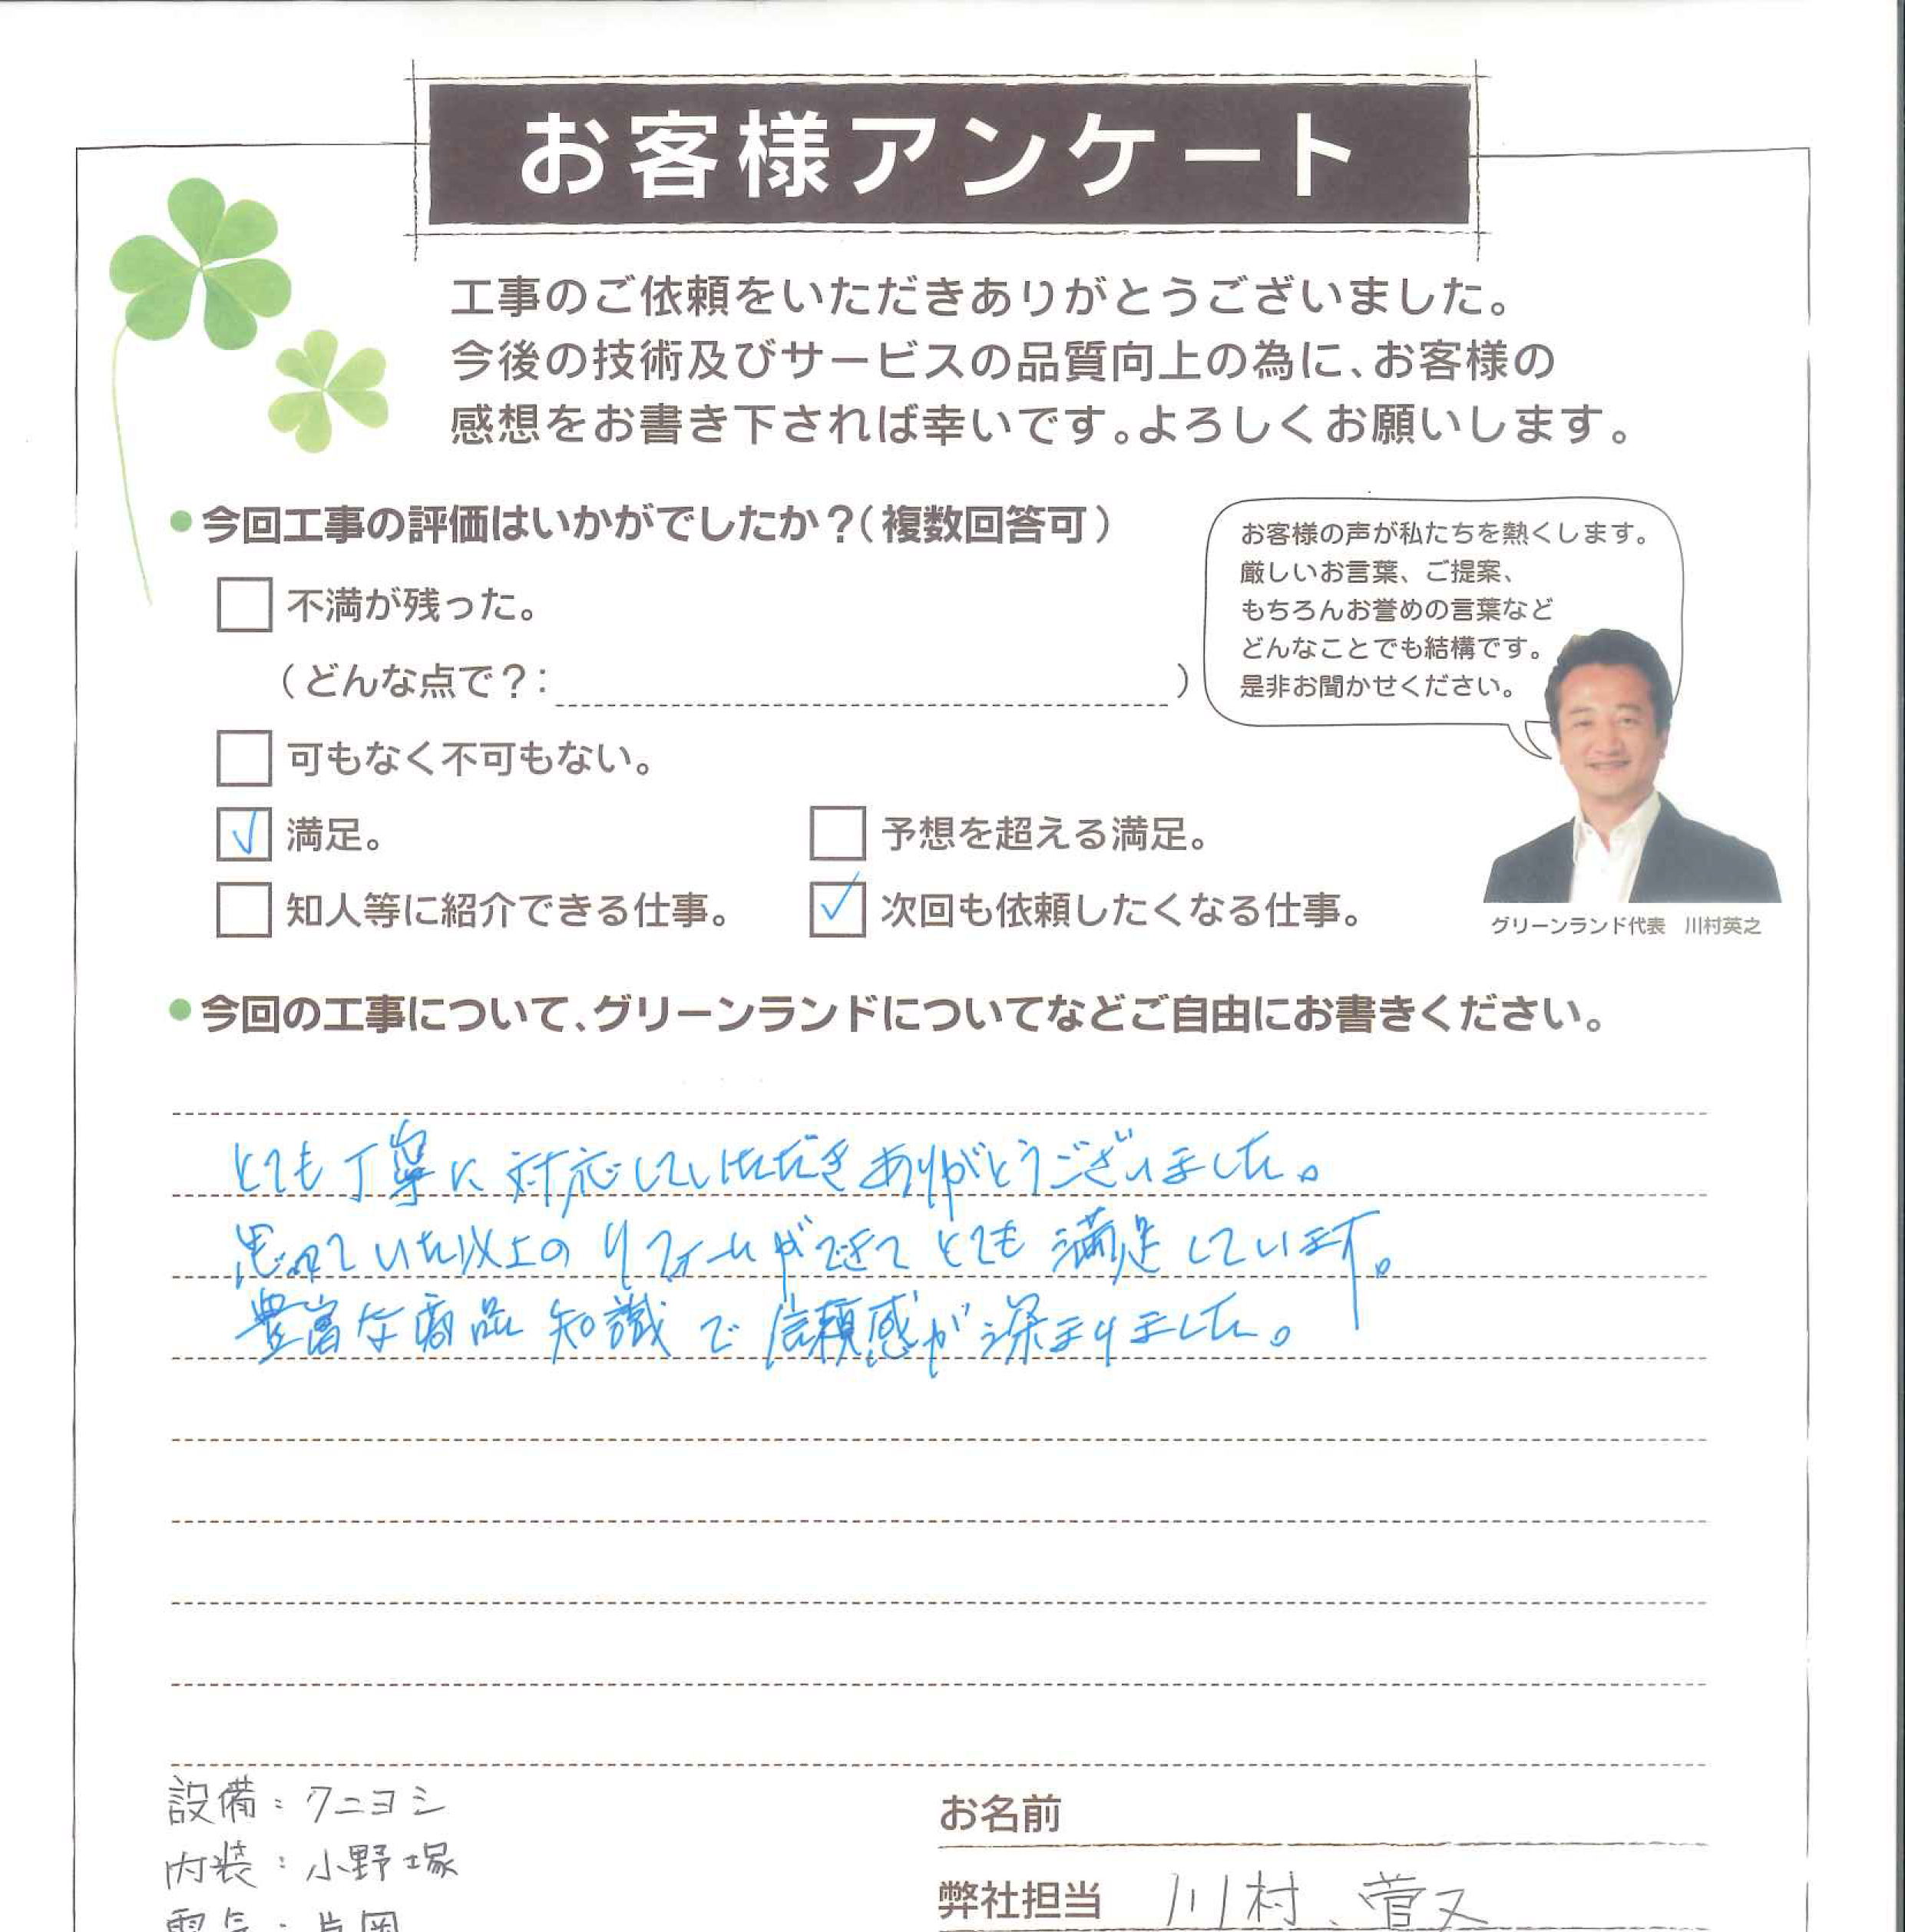 お客様アンケート
工事のご依頼をいただきありがとうございました。
今後の技術及びサービスの品質向上の為に、お客様の
感想をお書き下されば幸いです。よろしくお願いします。
●今回工事の評価はいかがでしたか？（複数回答可）
不満が残った。
（どんな点で？：　　　　）
可もなく不可もない。
満足。
予想を超える満足。
知人等に紹介できる仕事。
次回も依頼したくなる仕事。
お客様の声が私たちを熱くします。
厳しいお言葉、ご提案、
もちろんお誉めの言葉など
どんなことでも結構です。
是非お聞かせください。
グリーンランド代表　川村英之
●今回の工事について、グリーンランドについてなどご自由にお書きください。
とても丁寧に対応していただきありがとうございました。
思っていた以上のリフォームができて とても 満足しています。
豊富な商品知識で信頼感が深まりました。
設備：クニヨシ
内装：小野塚
電気：片岡
お名前
弊社担当　川村、菅又